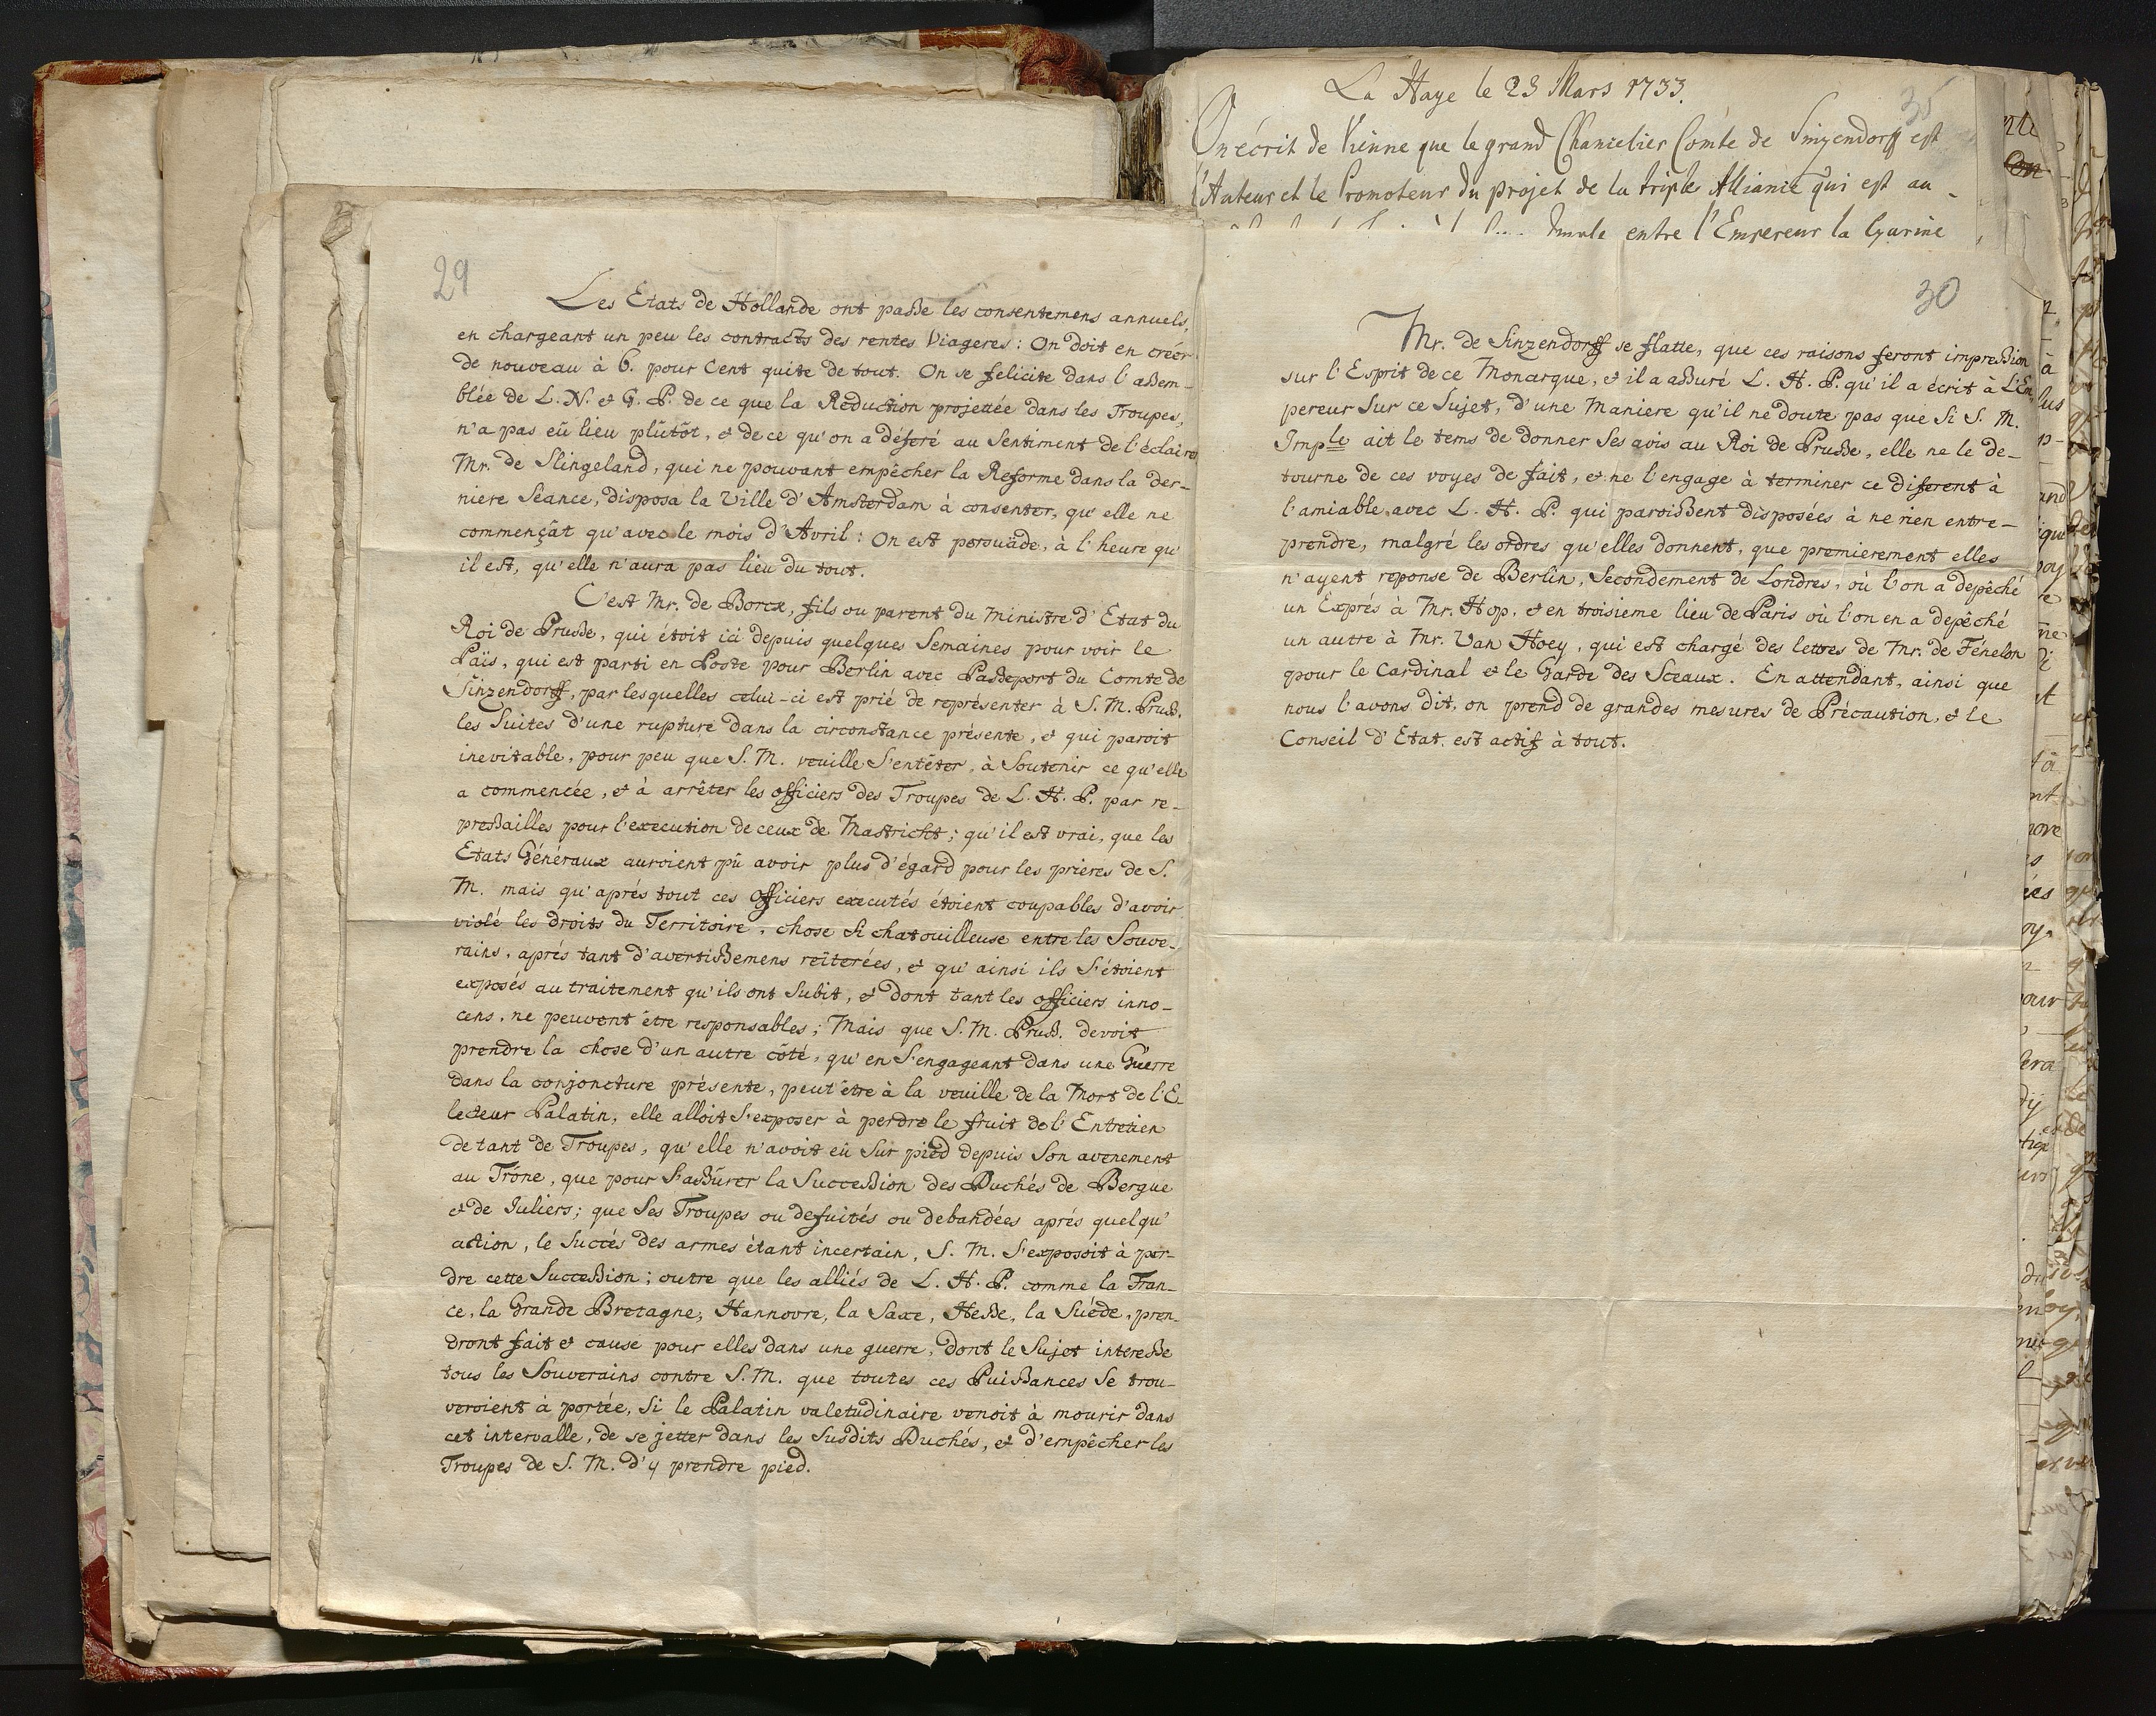 29
Les Etats de Hollande ont passé les consentemens annuels,
en chargeant un peu les contracts des rentes Viageres: On doit en créer
de nouveau à 6. pour Cent quite de tout. On se felicite dans l'assem-
blée de L. N. et G. P. de ce que la Réduction projettée dans les Troupes,
n'a pas eû lieu plûtôt, et de ce qu'on a déferé au Sentiment de l'éclairé
Mr. de Slingeland, qui ne pouvant empêcher la Reforme dans la der-
niere Séance, disposa la Ville d'Amsterdam à consenter, qu'elle ne
commençât qu'avec le mois d'Avril: On est persuadé, à l'heure qu'
il est, qu'elle n'aura pas lieu du tout.
C'est Mr. de Borck, fils ou parent du Ministre d'Etat du
Roi de Prusse, qui étoit ici depuis quelques Semaines pour voir le
Païs, qui est parti en Poste pour Berlin avec Passeport du Comte de
Sinzendorff, par lesquelles celui-ci est prié de représenter à S. M. Pruss.
les Suites d'une rupture dans la circonstance présente, et qui paroit
inevitable, pour peu que S. M. veuille S'entêter, à Soutenir ce qu'elle
a commencée, et à arrêter les officiers des Troupes de L. H. P. par re-
pressailles pour l'execution de ceux de Mastricht; qu'il est vrai, que les
Etats Généraux auroient pû avoir plus d'égard pour les prieres de S.
M. mais qu'aprés tout ces Officiers executés étoient coupables d'avoir
violé les droits du Territoire, chose si chatouilleuse entre les Souve-
rains, aprés tant d'avertissemens reïterées, et qu'ainsi ils S'étoient
exposés au traitement qu'ils ont Subit, et dont tant les officiers inno-
cens, ne peuvent être responsables; Mais que S. M. Pruss. devoit
prendre la chose d'un autre côté, qu'en S'engageant dans une Guerre
dans la conjoncture présente, peut être à la veuille de la Mort de l'E-
lecteur Palatin, elle alloit S'exposer à perdre le fruit de l'Entretien
de tant de Troupes, qu'elle n'avoit eû Sur pied depuis Son avenement
au Trône, que pour S'assûrer la Succession des Duchés de Bergue
et de Juliers; que Ses Troupes ou defuités ou debandées aprés quelqu'
action, le Succés des armes étant incertain, S. M. S'exposoit à per-
dre cette Succession; outre que les alliés de L. H. P. comme la Fran-
ce, la Grande Bretagne, Hannovre, la Saxe, Hesse, la Suéde, pren-
dront fait et cause pour elles dans une guerre, dont le Sujet interesse
tous les Souverains contre S. M. que toutes ces Puissances Se trou-
veroient à portée, Si le Palatin valetudinaire venoit à mourir dans
cet intervalle, de se jetter dans les Susdits Duchés, et d'empêcher les
Troupes de S. M. d'y prendre pied.
La Haye le 23 Mars 1733.
35
On écrit de Vienne que le grand Chancelier Comte de Sinzendorff est
l'Auteur et le Promoteur du projet de la triple Alliance qui est au-
entre l'Empereur la Czarine
30
Mr. de Sinzendorff se flatte, que ces raisons feront impression
sur l'Esprit de ce Monarque, et il a assuré L. H. P. qu'il a écrit à L'Em-
pereur Sur ce Sujet, d'une Maniere qu'il ne doute pas que Si S. M.
Imple ait le tems de donner Ses avis au Roi de Prusse, elle ne le de-
tourne de ces voyes de fait, et ne l'engage à terminer ce diferent à
l'amiable avec L. H. P. qui paroissent disposées à ne rien entre-
prendre, malgré les ordres qu'elles donnent, que premierement elles
n'ayent reponse de Berlin, Secondement de Londres, où l'on a depêché
un Exprés à Mr. Hop, et en troisieme lieu de Paris où l'on en a depêché
un autre à Mr. Van Hoey, qui est chargé des lettres de Mr. de Fénelon
pour le Cardinal et le Garde des Sceaux. En attendant, ainsi que
nous l'avons dit, on prend de grandes mesures de Précaution, et le
Conseil d'Etat est actif à tout.